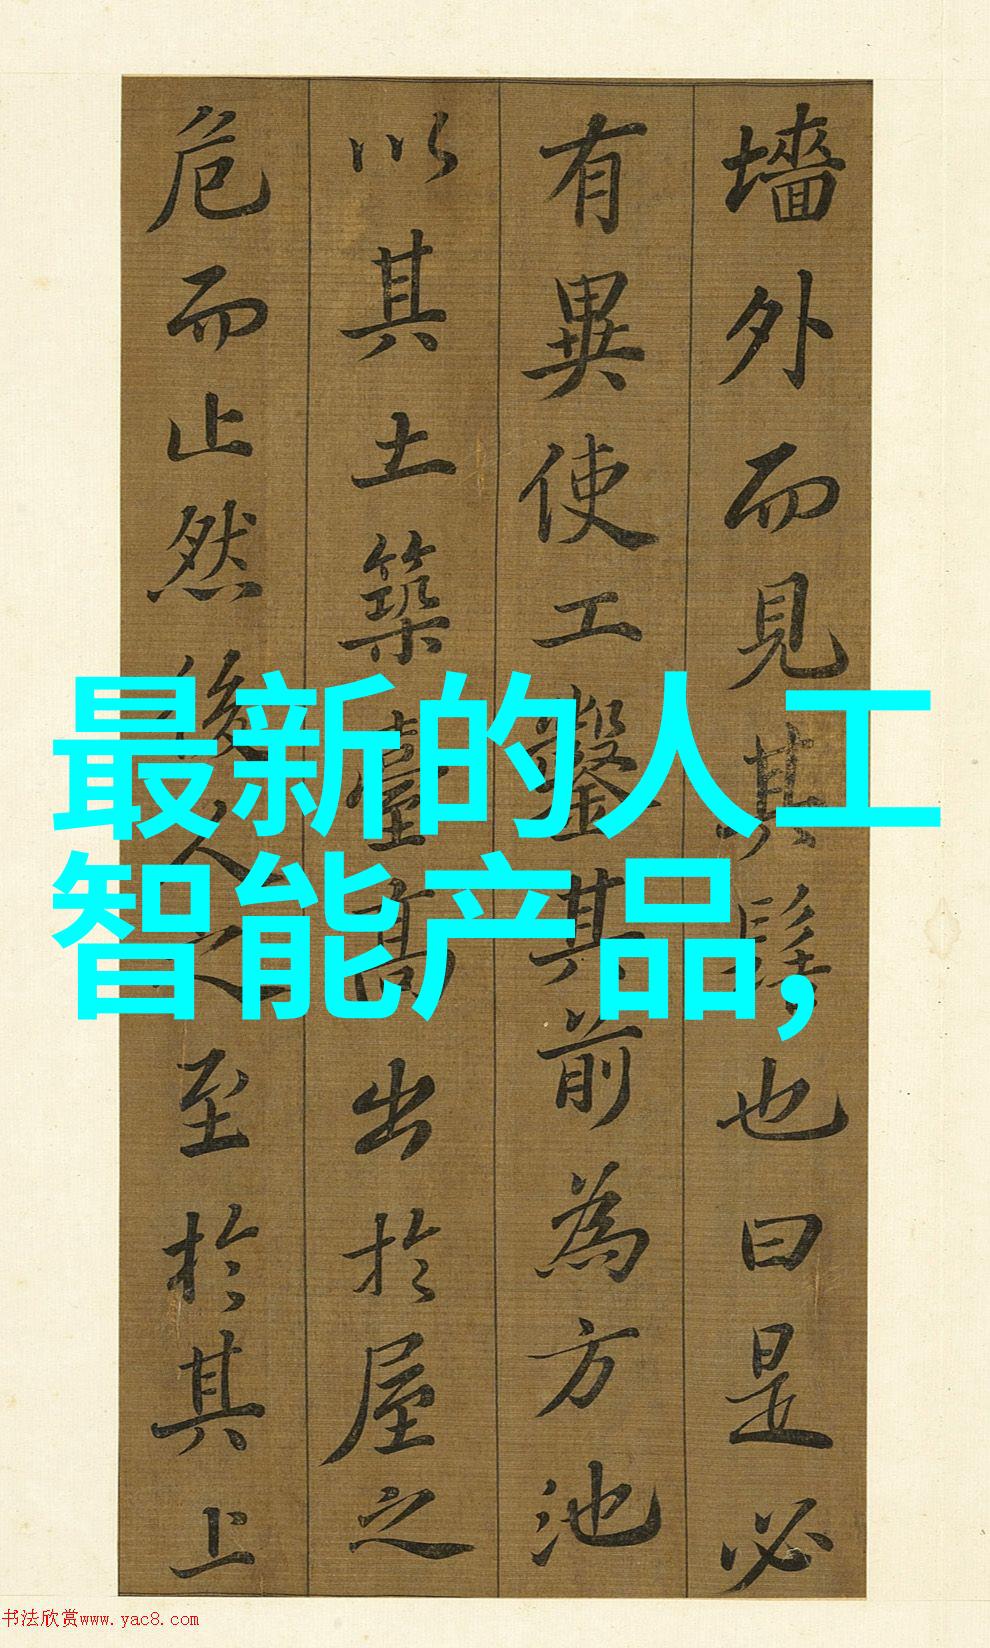 墻外而見其髻也曰是必
有異使工鑿其前為方池
以其土築臺高出於屋之
危而止然後人之至於其上
最新的人工
智能产品,
书法欣赏www.yac8.com